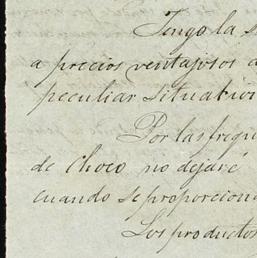 Tengo la s
a precios ventajosos a
peculiar situatio
Por las frequ
de Choco no dejaré
cuando se proporcion
Los productos